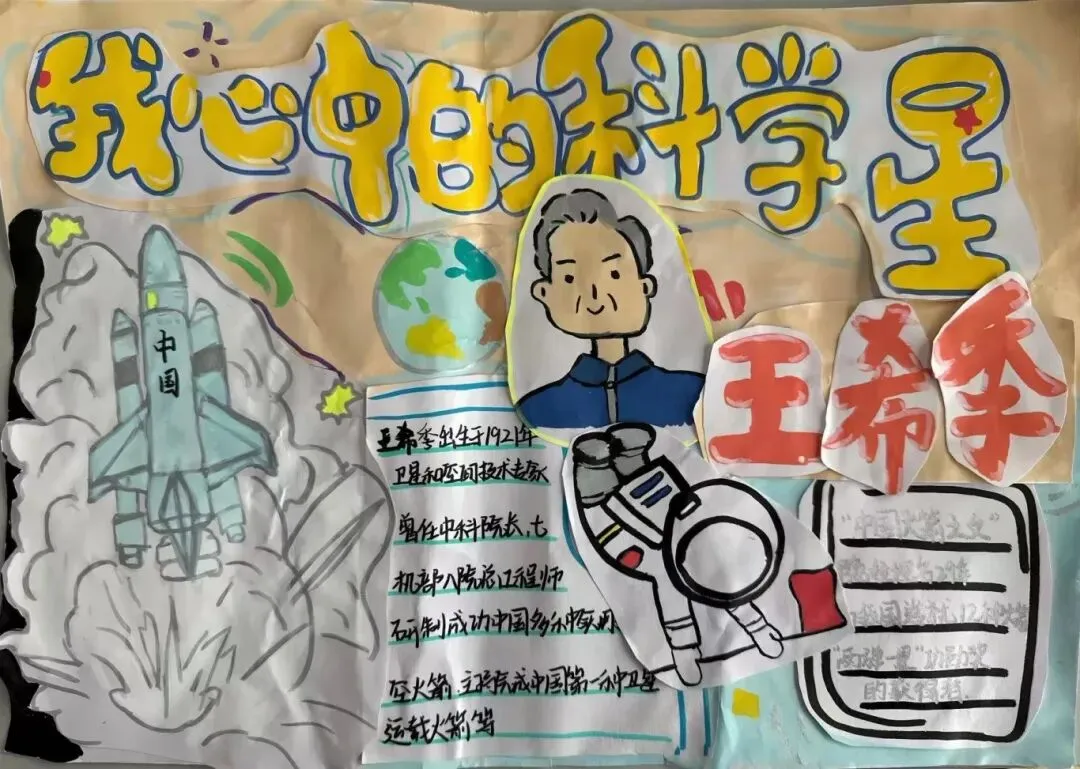 我心中的科学星
王希季
中国
王希季出生于1921年
卫星和空间技术专家
曾任中科院院长、七
机部八院总工程师
研制成功中国多种
空火箭、主持完成中国第一种卫星
运载火箭等
"中国火箭之父"
"两弹一星"功勋奖
的获得者.